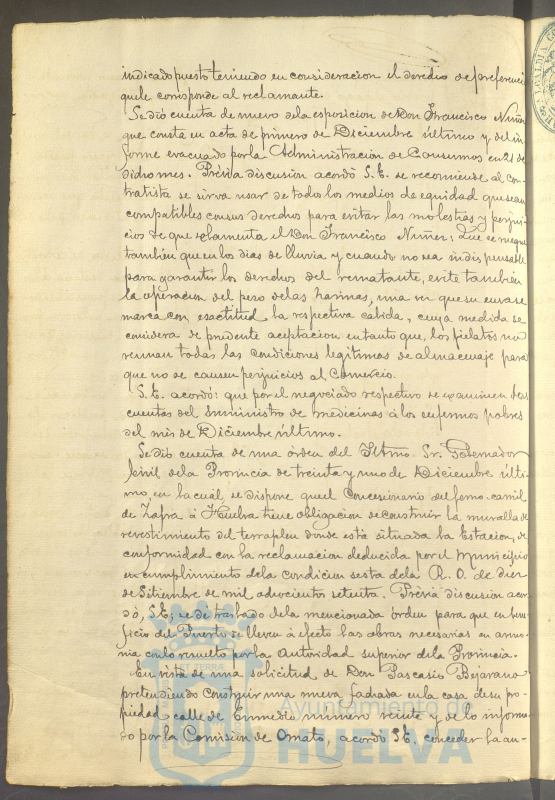 indicado puesto teniendo en consideracion el derecho de preferenci
que le corresponde al reclamante.
Se dió cuenta de nuevo de la esposicion de Don Francisco Nuñez
que consta en acta de primero de Diciembre último y del in
forme evacuado por la Administracion de Consumos en 21 de
dicho mes. Prévia discusion acordó S.E. se recomiende al con-
tratista se sirva usar de todos los medios de equidad que sean
compatibles con sus derechos para evitar las molestias y perjui
cios de que se lamenta el Don Francisco Nuñez; que se
tambien que en los dias de lluvia y cuando no sea indispensable
para garantir los derechos del rematante, evite tambien
la operacion del peso de las harinas, una vez que su envase
marca con esactitud la respectiva cabida, cuya medida se
considera de prudente aceptacion en tanto que, los fielatos no
reunan todas las condiciones legitimas de almacenaje para
que no se causen perjuicios al Comercio.
S.E. acordó: que por el negociado respectivo se examinen las
cuentas del Suministro de medicinas á los enfermos pobres
del mes de Diciembre último.
Se dió cuenta de una órden del Iltmo. Sr. Gobernador
Civil de la Provincia de treinta y uno de Diciembre últi-
mo, en la cual, se dispone que el Concesionario del ferro-carril
de Zafra á Huelva tiene obligacion de construir la muralla de
revestimiento del terraplen donde está situada la Estacion, de
conformidad con la reclamacion deducida por el Municipio
en cumplimiento de la condicion sesta de la R. O. de diez
de Setiembre de mil ochocientos setenta. Prévia discusion acor
dó, S.E; se dé traslado de la mencionada órden para que en bene
ficio del Puerto se lleven á efecto las obras necesarias en armo
nia con lo resuelto por la Autoridad superior de la Provincia.
En vista de una solicitud de Don Pascasio Bejarano
pretendiendo construir una nueva fachada en la casa de su pro
piedad calle de Enmedio número veinte y de lo informa
do por la Comision de Ornato, acordó S.E. conceder la au-
Ayuntamiento de
HUELVA